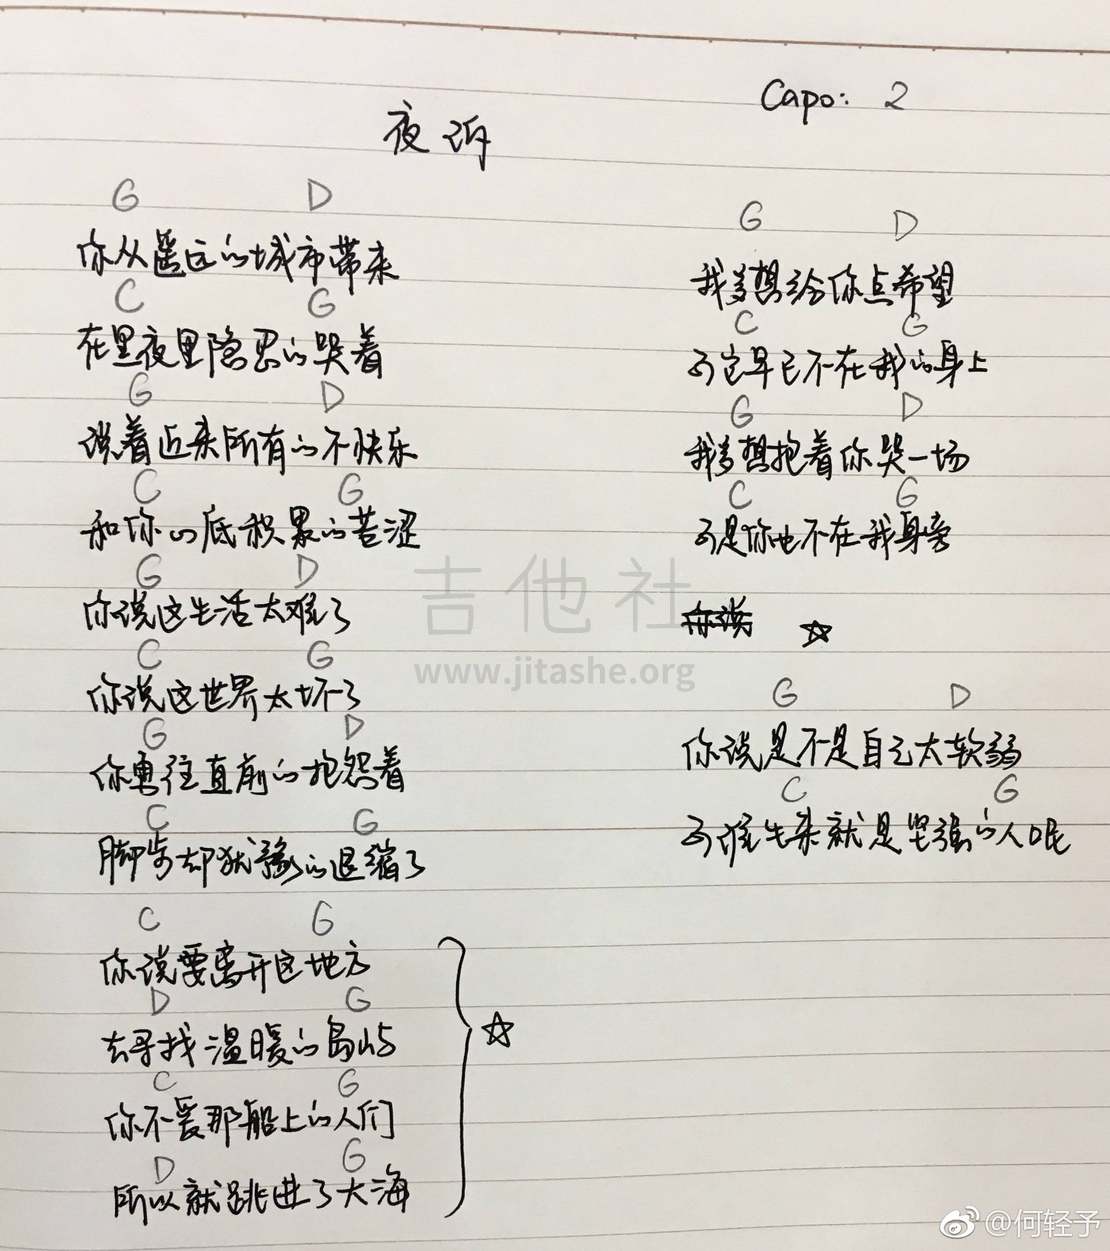 Capo: 2
夜诉
G D
你从遥远的城市带来
C G
在黑夜里隐忍的哭着
G D
说着近来所有的不快乐
C G
和你心底积累的苦涩
G D
你说这生活太难了
C G
你说这世界太坏了
G D
你勇往直前的抱怨着
C G
脚步却犹豫的退缩了
C G
你说要离开这地方
D G
去寻找温暖的岛屿
C G
你不爱那船上的人们
D G
所以就跳进了大海
☆
G D
我多想给你点希望
C G
可它早已不在我的身上
G D
我多想抱着你哭一场
C G
可是你也不在我身旁
你说 ☆
G D
你说是不是自己太软弱
C G
可谁生来就是坚强的人呢
吉他社
www.jitashe.org
@何轻予